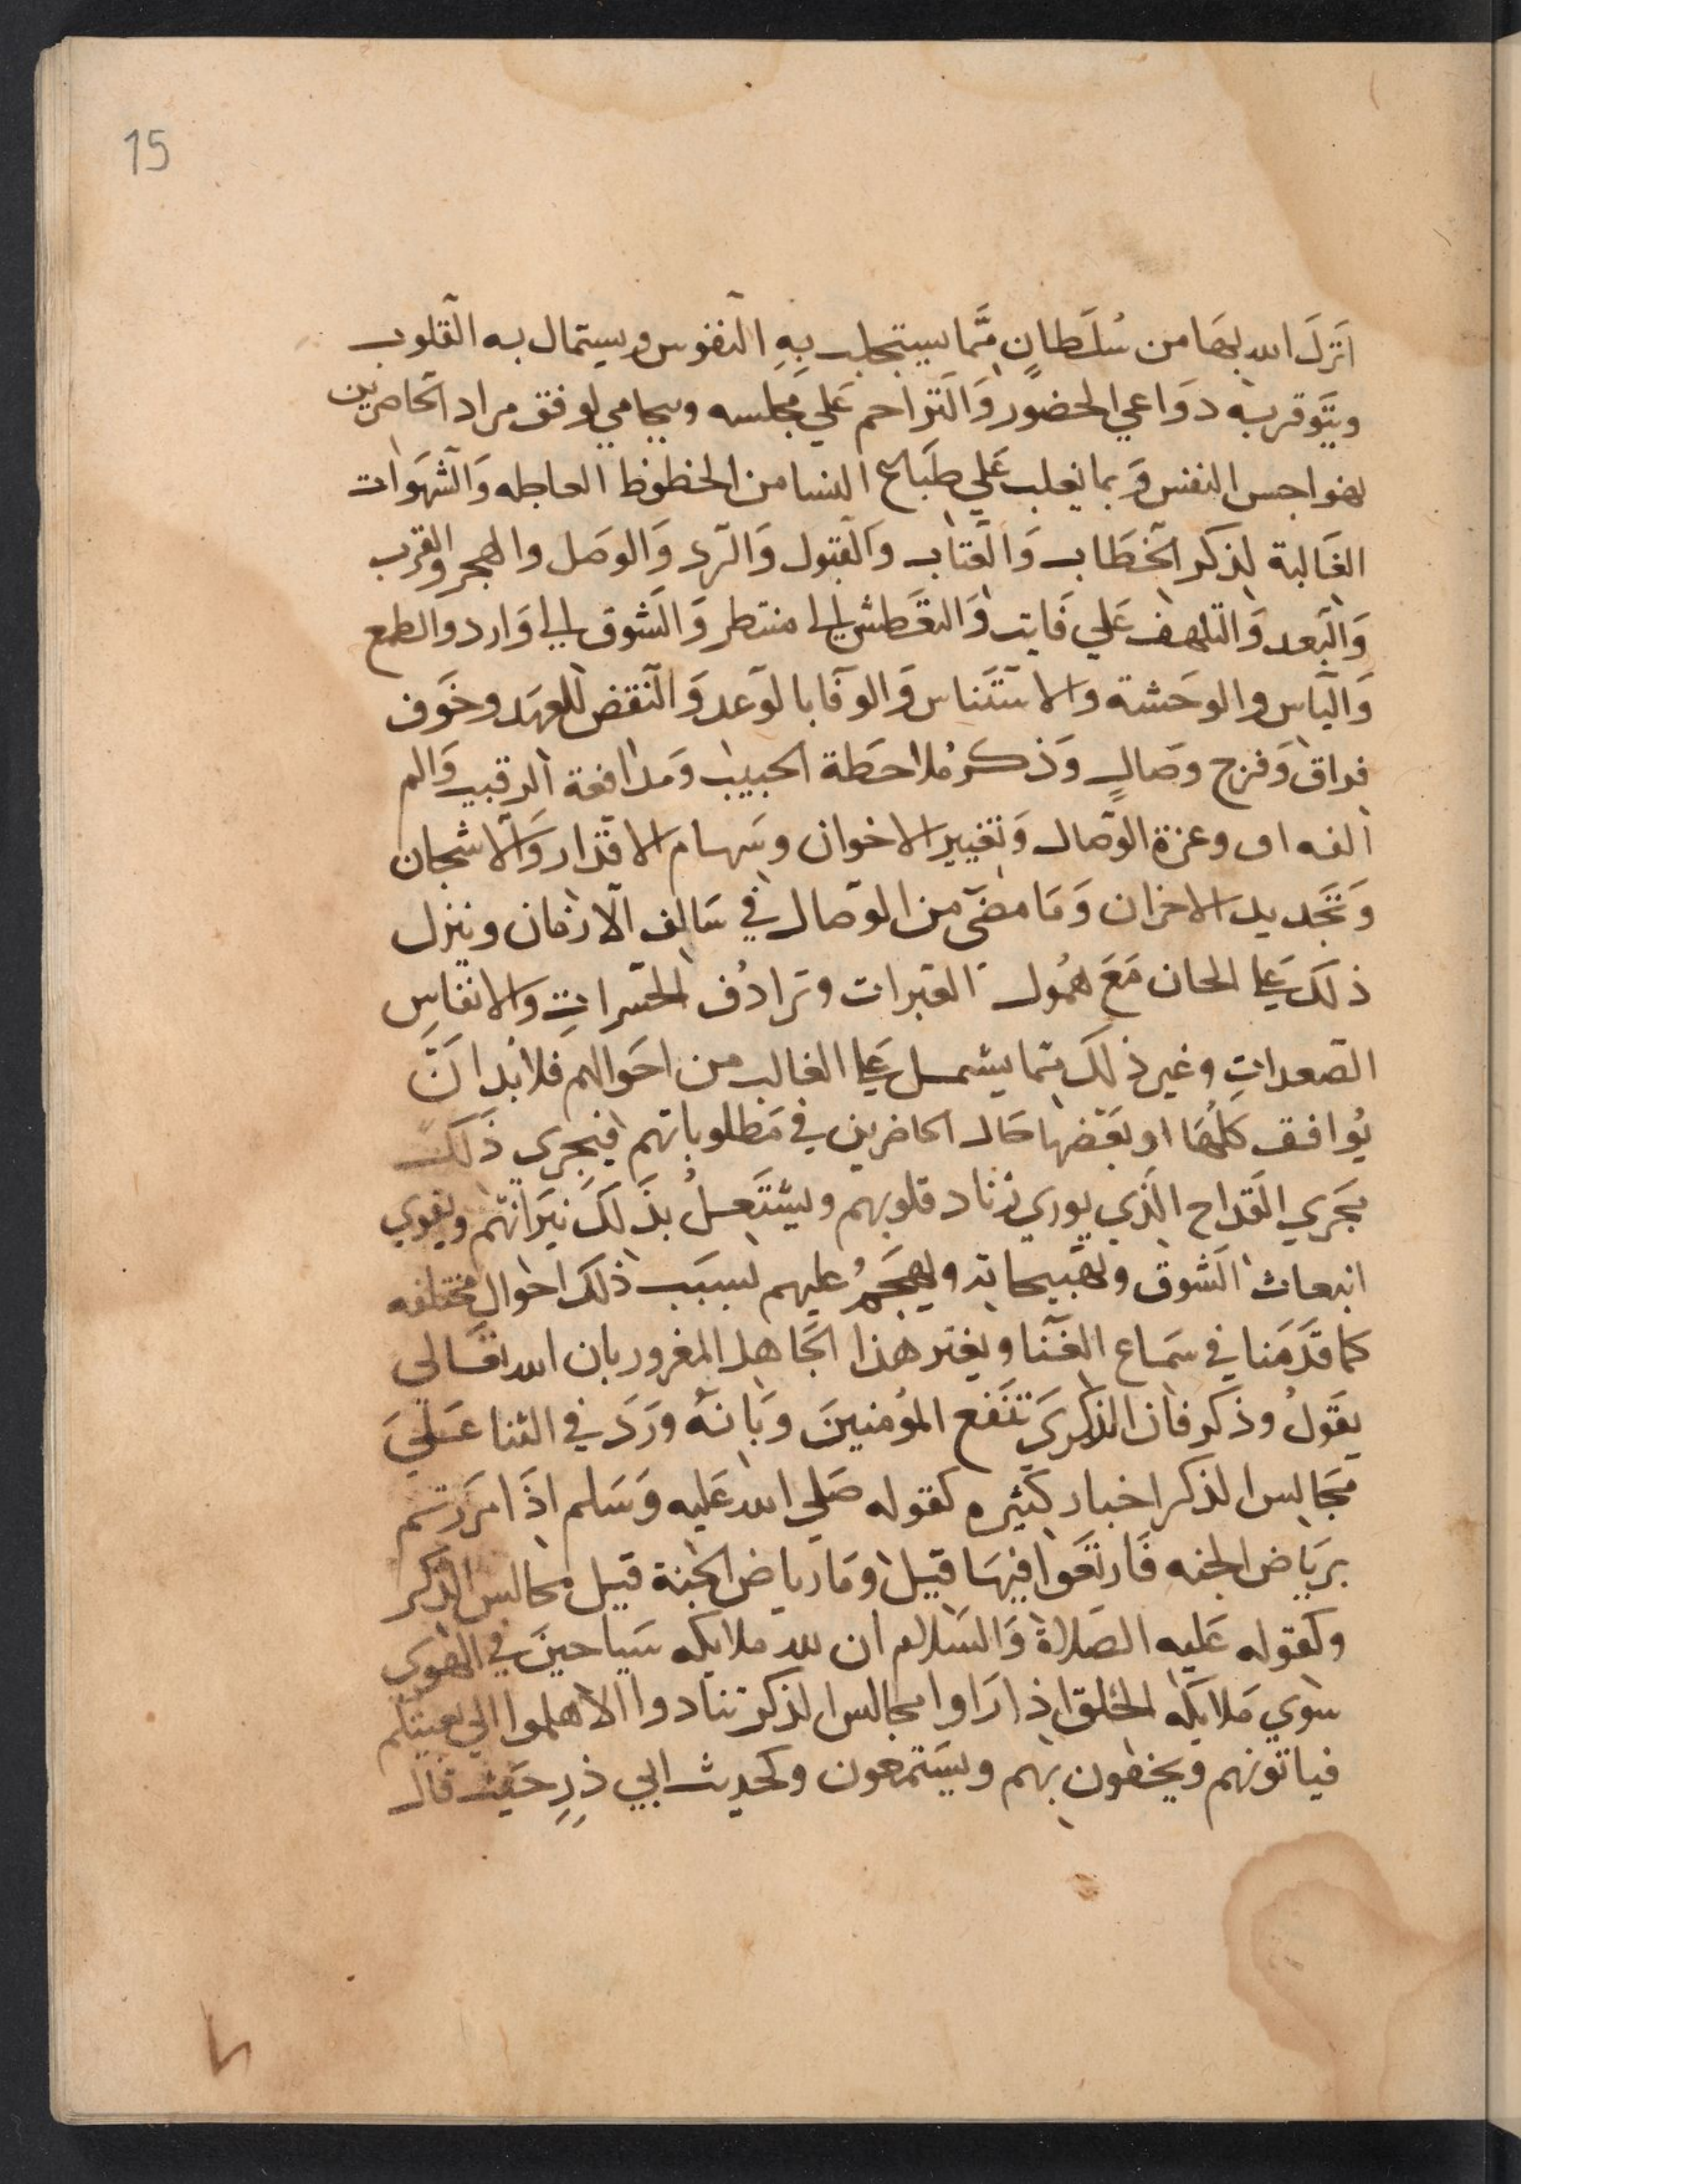 15
انزلَ الله بهَا من سُلطانٍ ممَّا يستجلب بِهِ النفوس ويستمال به القلوب
ويتوَقر به دوَاعي الحضور وَالتزاحم عَلي مجلسه ويحامي لوفق مراد الحاضرين
لهواجس النفس وَبما يغلب عَلي طبَاع النسا من الحظوظ العاجله وَالشهَوات
الغَالبة لذكر الخطَاب وَالعتاب وَالقبول وَالرد وَالوصَل والهجر والقرب
وَالبَعد وَالتلهف عَلي فَايت وَالتعَطش الى منتظر وَالشوق الى وَارد والطمع
وَالياس والوحَشة والاستئنَاس وَالوفَا بالوَعد وَالنقض للعهَد وخَوف
فراق وَفرح وصَالٍ وَذكر مُلاحظة الحبيب وَمدافعة الرقيب وَالم
الفراق وعزة الوصَال وَتغيير الاخوان وسَهام الاقدار وَالاشجان
وَتجَديد الاحزان وَمَا مضَى من الوصَال في سَالف الازمان وينزل
ذلكَ عَلى الحان مَعَ همُول العَبرات وترادُف الحسَراتِ والانفاسِ
الصَعداتِ وغير ذلكَ ممَا يشمل عَلى الغالب من احَوالهم فلا بُد انَّ
يُوافق كلهَا او بعَضهَا حَال الحاضرين في مَطلوباتهم فيجري ذَلكَ
مجَري القَداح الذَي يوري زناد قلوبهم وليشتَعلُ بذَلكَ نيَرانهم ويقوي
انبعاث الشوق وتهييجاته ويهجَمُ عليهم بسبَب ذلك احَوال مختلفه
كما قدَمَنا في سَماع الغنَا ويغتر هذا الجَاهل المغرور بان الله تعَالي
يقَولُ وذكر فان الذكري تنَفع المؤمنينَ وَبانهُ ورَدَ في الثنا عَليَ
مجَالس الذكر اخبار كثيره كقوله صَلي الله عَليه وَسَلم اذَا مرَرتم
برَياض الجنه فَارتعَوا فيهَا قيل ومَا رياض الجَنة قيل مجالس الذكر
وكقوله عَليه الصَلاة وَالسَلام ان لله ملايكه سَياحينَ في الهوَي
سوي مَلايكة الخَلق اذا رَاوا مجالس الذكر تنادوا الا هلموا الي بغيتكم
فياتونهم ويحفون بهم ويسَتمعون وكحديث ابي ذرٍ حَيث قال